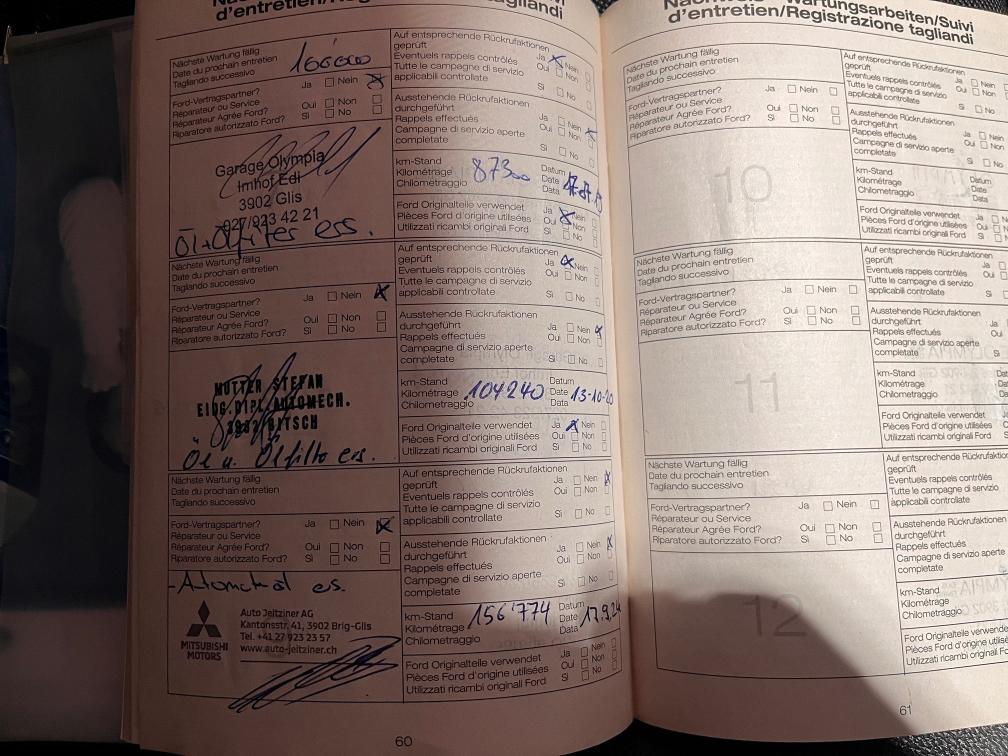 d'entretien/Registrazione tagliandi
Nächste Wartung fällig
Date du prochain entretien
Tagliando successivo
Ja Nein
Ford-Vertragspartner?
Réparateur ou Service
Réparateur Agrée Ford?
Riparatore autorizzato Ford?
Oui Non
Si No
Garage Olympia
Imhof Edi
3902 Glis
027/923 42 21
Öl+Ölfilter ess.
Auf entsprechende Rückrufaktionen
geprüft
Eventuels rappels contrôlés
Tutte le campagne di servizio
applicabili controllate
Ja Nein
Oui Non
Si No
Ausstehende Rückrufaktionen
durchgeführt
Rappels effectués
Campagne di servizio aperte
completate
Ja Nein
Oui Non
Si No
km-Stand
Kilométrage
Chilometraggio
87300
Datum
Date
Data
Ford Originalteile verwendet
Pièces Ford d'origine utilisées
Utilizzati ricambi originali Ford
Ja Nein
Oui Non
Si No
Nächste Wartung fällig
Date du prochain entretien
Tagliando successivo
Ford-Vertragspartner?
Réparateur ou Service
Réparateur Agrée Ford?
Riparatore autorizzato Ford?
Ja Nein
Oui Non
Si No
MUTTER STEFAN
EIDG.DIPL.AUTOMECH.
3982 BITSCH
Öl u. Ölfilto ers.
Auf entsprechende Rückrufaktionen
geprüft
Eventuels rappels contrôlés
Tutte le campagne di servizio
applicabili controllate
Ja Nein
Oui Non
Si No
Ausstehende Rückrufaktionen
durchgeführt
Rappels effectués
Campagne di servizio aperte
completate
Ja Nein
Oui Non
Si No
km-Stand
Kilométrage
Chilometraggio
104240
Datum
Date
Data
13-10-20
Ford Originalteile verwendet
Pièces Ford d'origine utilisées
Utilizzati ricambi originali Ford
Ja Nein
Oui Non
Si No
Nächste Wartung fällig
Date du prochain entretien
Tagliando successivo
Ford-Vertragspartner?
Réparateur ou Service
Réparateur Agrée Ford?
Riparatore autorizzato Ford?
Ja Nein
Oui Non
Si No
MITSUBISHI
MOTORS
Auto Jeitziner AG
Kantonsstr. 41, 3902 Brig-Glis
Tel. +41 27 923 23 57
www.auto-jeitziner.ch
Auf entsprechende Rückrufaktionen
geprüft
Eventuels rappels contrôlés
Tutte le campagne di servizio
applicabili controllate
Ja Nein
Oui Non
Si No
Ausstehende Rückrufaktionen
durchgeführt
Rappels effectués
Campagne di servizio aperte
completate
Ja Nein
Oui Non
Si No
km-Stand
Kilométrage
Chilometraggio
156'774
Datum
Date
Data
Ford Originalteile verwendet
Pièces Ford d'origine utilisées
Utilizzati ricambi originali Ford
Ja Nein
Oui Non
Si No
60
Wartungsarbeiten/Suivi
d'entretien/Registrazione tagliandi
Nächste Wartung fällig
Date du prochain entretien
Tagliando successivo
Ford-Vertragspartner?
Réparateur ou Service
Réparateur Agrée Ford?
Riparatore autorizzato Ford?
Ja Nein
Oui Non
Si No
10
Auf entsprechende Rückrufaktionen
geprüft
Eventuels rappels contrôlés
Tutte le campagne di servizio
applicabili controllate
Ja Nein
Oui
Si No
Ausstehende Rückrufaktionen
durchgeführt
Rappels effectués
Campagne di servizio aperte
completate
Ja Nein
Oui Non
Si No
km-Stand
Kilométrage
Chilometraggio
Datum
Date
Data
Ford Originalteile verwendet
Pièces Ford d'origine utilisées
Utilizzati ricambi originali Ford
Ja
Oui
Si
Nächste Wartung fällig
Date du prochain entretien
Tagliando successivo
Ford-Vertragspartner?
Réparateur ou Service
Réparateur Agrée Ford?
Riparatore autorizzato Ford?
Ja Nein
Oui Non
Si No
11
Auf entsprechende Rückrufaktionen
geprüft
Eventuels rappels contrôlés
Tutte le campagne di servizio
applicabili controllate
Ja
Oui
Si
Ausstehende Rückrufaktionen
durchgeführt
Rappels effectués
Campagne di servizio aperte
completate
Ja
Oui
Si
km-Stand
Kilométrage
Chilometraggio
Ford Originalteile verwendet
Pièces Ford d'origine utilisées
Utilizzati ricambi originali Ford
Nächste Wartung fällig
Date du prochain entretien
Tagliando successivo
Ford-Vertragspartner?
Réparateur ou Service
Réparateur Agrée Ford?
Riparatore autorizzato Ford?
Ja Nein
Oui Non
Si No
12
geprüft
Eventuels rappels contrôlés
Tutte le campagne di servizio
applicabili controllate
durchgeführt
Rappels effectués
Campagne di servizio aperte
completate
km-Stand
Kilométrage
Chilometraggio
Ford Originalteile
Pièces Ford d'origine utilisées
Utilizzati ricambi originali
61